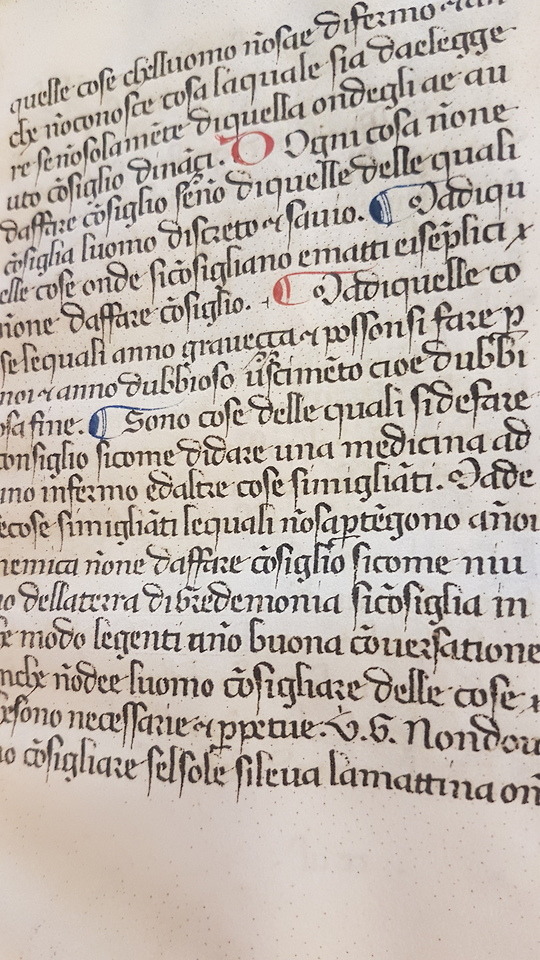 quelle cose chelluomo nosae difermo
che nōconosce cosa laquale sia daelegge
re senōsolamēte diquella ondegli ae au
uto cōsiglio dināçi. Ogni cosa nōne
daffare cōsiglio senō diquelle delle quali
cōsiglia luomo discreto ⁊ sauio. Madiqu
elle cose onde sicōsigliano ematti eisēplici
none daffare cōsiglio. Madiquelle co
se lequali anno graueçça ⁊ possonsi fare p̱
noi ⁊ anno dubbioso uscimēto cioe dubbi
osa fine. Sono cose delle quali sidefare
consiglio sicome didare una medicina ad
uno infermo edaltre cose simigliāti. Made
ecose simigliāti lequali nōsap̱tēgono anoi
nemica nōne daffare cōsiglio sicome niu
no dellaterra dibredemonia sicōsiglia in
he modo legenti uno buona cōuersatione
nche nōdee luomo cōsigliare delle cose
esono necessarie ⁊ p̱petue. V.G. Nondou
no cōsigliare selsole sileua lamattina on